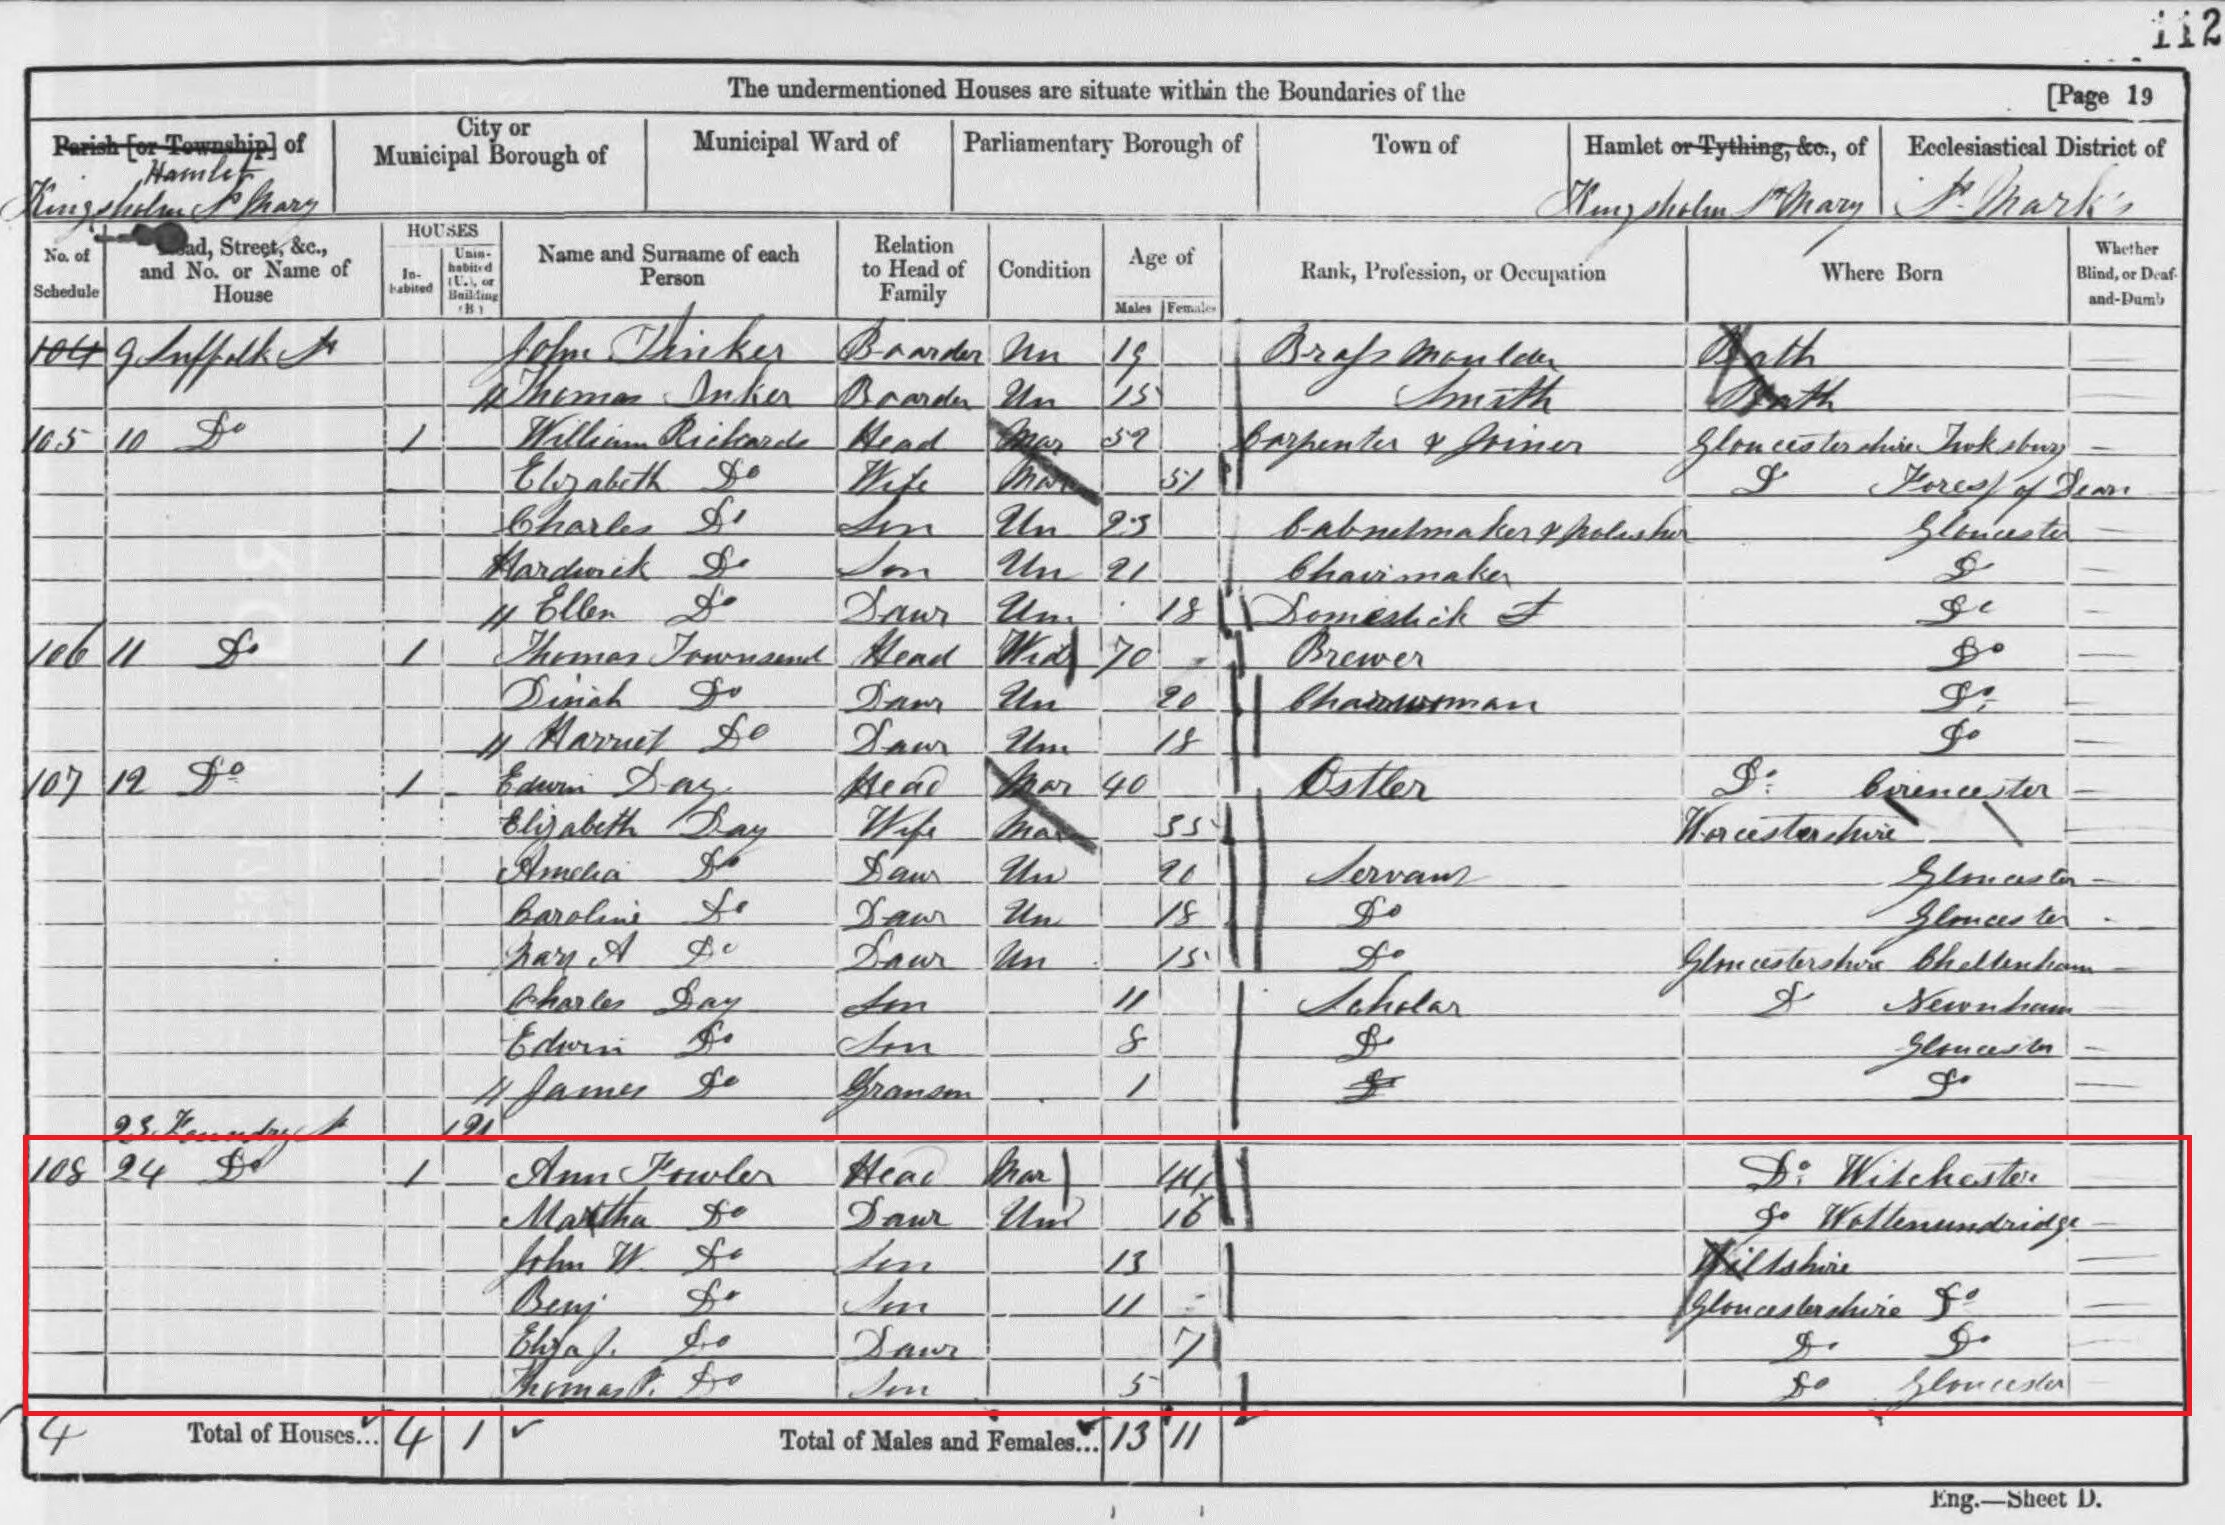 112
The undermentioned Houses are situate within the Boundaries of the [Page 19
Parish [or Township] of Hamlet Kingsholm St Mary
City or Municipal Borough of
Municipal Ward of
Parliamentary Borough of
Town of
Hamlet or Tything, &c., of Kingsholm St Mary
Ecclesiastical District of St. Mark's
No. of Schedule
Road, Street, &c., and No. or Name of House
HOUSES
In-habited
Unin-habited (U.), or Building (B)
Name and Surname of each Person
Relation to Head of Family
Condition
Age of
Males Females
Rank, Profession, or Occupation
Where Born
Whether Blind, or Deaf-and-Dumb
104 9 Suffolk St John Tinker Boarder Un 19 Brass Moulder Bath
Thomas Inker Boarder Un 15 Smith Bath
105 10 Do 1 William Rickards Head Mar 52 Carpenter & Joiner Gloucestershire Tuksbury
Elizabeth Do Wife Mar 51 Do Forest of Dean
Charles Do Son Un 23 Cabnetmaker & polisher Gloucester
Hardwick Do Son Un 21 Chairmaker Do
Ellen Do Daur Un 18 Domestick Do
106 11 Do 1 Thomas Townsend Head Wid 70 Brewer Do
Dinah Do Daur Un 20 Charwoman Do
Harriet Do Daur Un 18 Do
107 12 Do 1 Edwin Day Head Mar 40 Ostler Do Cirencester
Elizabeth Day Wife Mar 55 Worcestershire
Amelia Do Daur Un 20 Servant Gloucester
Caroline Do Daur Un 18 Do Gloucester
Mary A Do Daur Un 15 Do Gloucestershire Cheltenham
Charles Day Son 11 Scholar Do Newnham
Edwin Do Son 8 Do Gloucester
James Do Granson 1 Do Do
23 Foundry St
108 24 Do 1 Ann Fowler Head Mar 44 Do Witchester
Martha Do Daur Un 16 Do Wottenundridge
John W. Do Son 13 Wiltshire
Benj Do Son 11 Gloucestershire Do
Eliza J. Do Daur 7 Do Do
Thomas P. Do Son 5 Do Gloucester
4 Total of Houses... 4 1 Total of Males and Females... 13 11
Eng.—Sheet D.